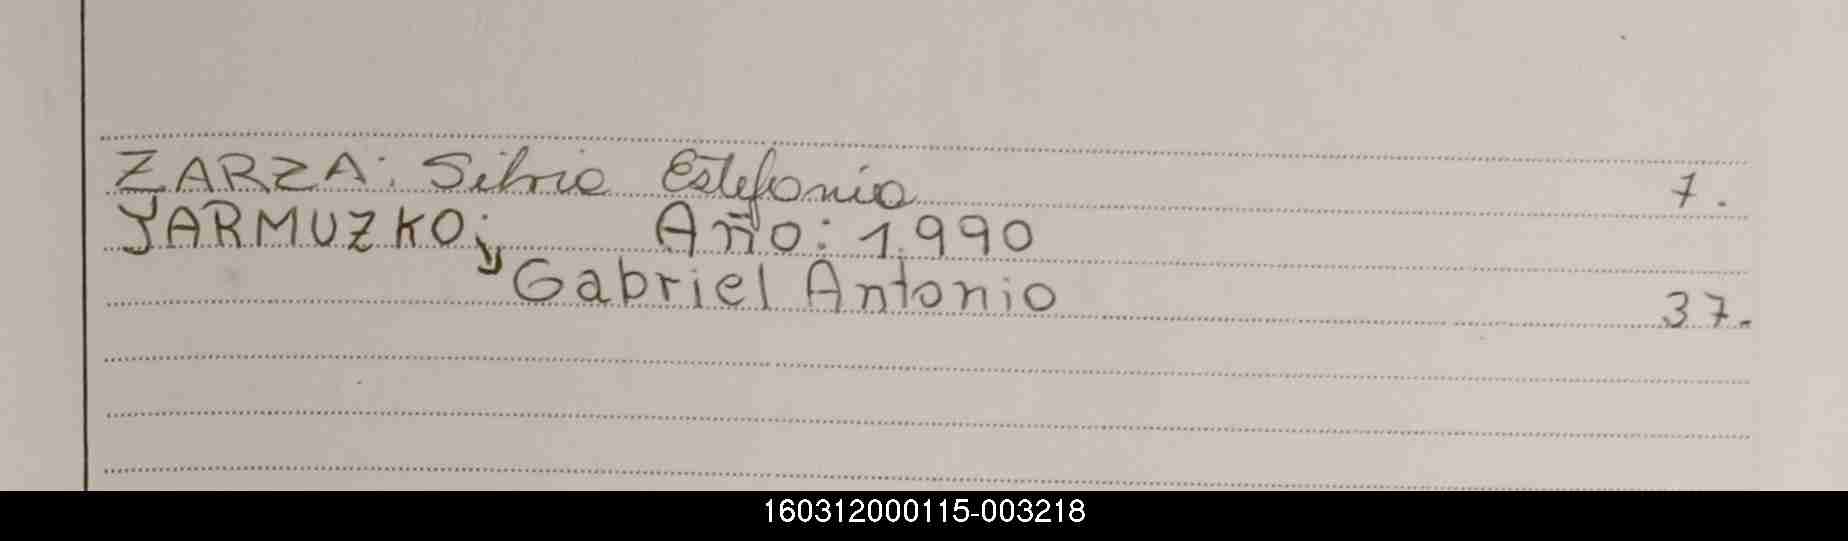 ZARZA: Silvia Estefania 7.
YARMUZKO: Año: 1.990
Gabriel Antonio 37.
160312000115-003218